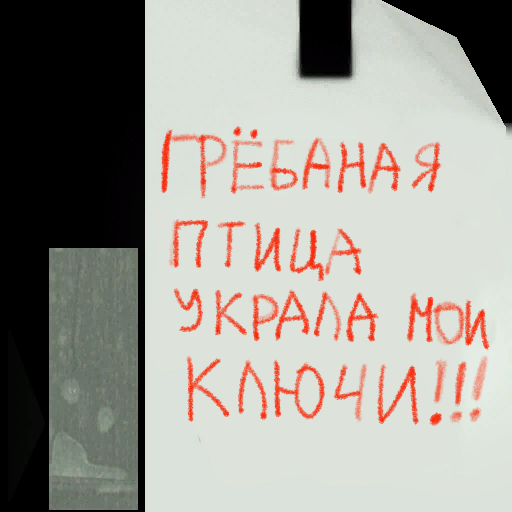 ГРЁБАНАЯ
ПТИЦА
УКРАЛА МОИ
КЛЮЧИ!!!